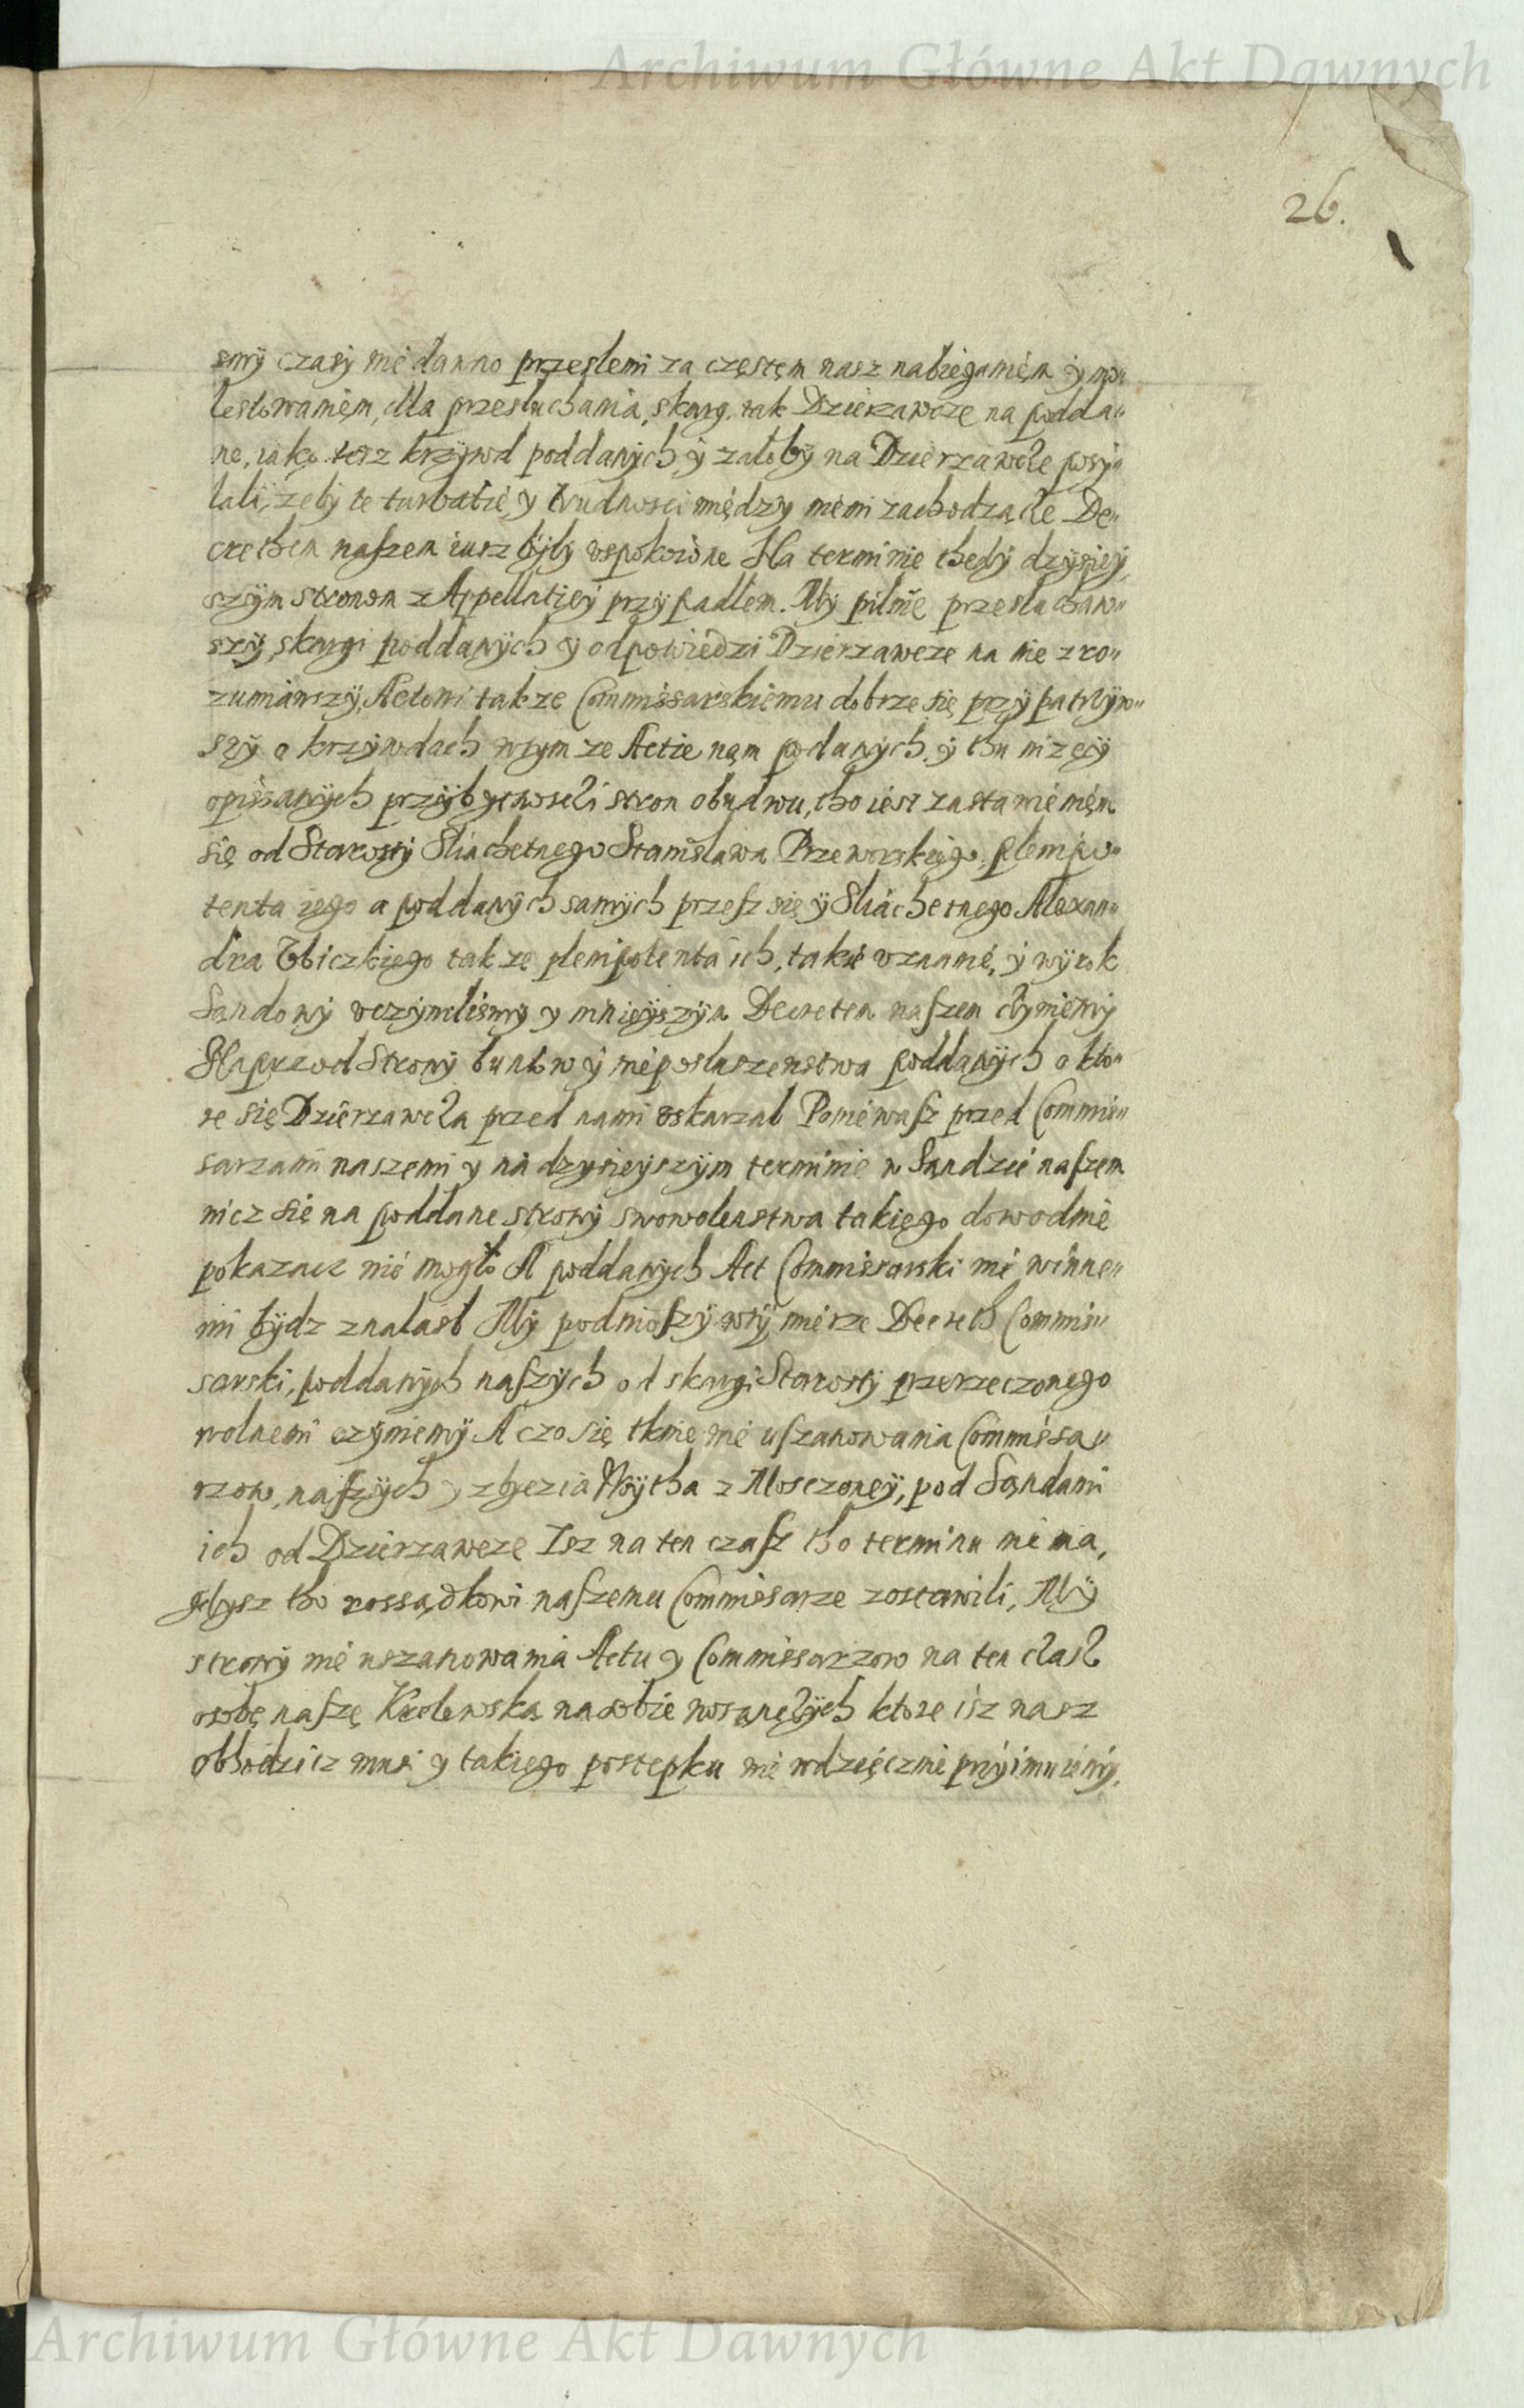 Archiwum Główne Akt Dawnych
26.
smÿ czasÿ nie dawno przeslemi za częstęm nasz nabieganięm ÿ mo„
lestowanięm, dla przesłuchania, skarg, tak Dzierzawcze na podda„
ne, iako tesz krzÿwd poddanÿch ÿ załobÿ na Dzierzawcze posÿ„
łali, zebÿ te turbatie, y trudnosci międzÿ niemi zachodzącze De„
crethem naszem iusz bÿłÿ vspokoione Na terminie thedÿ dzysieÿ„
szÿm stronom z Appellatieÿ przÿpadłem. Mÿ pilnie przesłuchaw„
szÿ, skargi poddanÿch ÿ odpowiedzi Dzierzawcze na nie zro„
zumiawszÿ, Actowi takze Commissarskiemu dobrze się przÿpatrzÿw„
szÿ o krzÿwdach wtym ze Actie nąm podanÿch, ÿ thu nizeÿ
opissanÿch przÿbytnosci stron obudwu, tho iest zastawienięm
się od Starostÿ Sliachetnego Stanisława Przeworskiego, plenipo„
tenta iego a poddanÿch samÿch przesz się ÿ Sliachetnego Alexan„
dra Vbiczkiego takze plenipotenta ich, takie vznanie, ÿ wÿrok
Sąndowÿ vczÿniliśmy y mnieÿszÿm Decretem naszem czÿniemÿ
Naprzod Stronÿ buntow ÿ nieposłuszenstwa poddanÿch o kto„
re się Dzierzawcza przed nami oskarzał Poniewasz przed Commis„
sarzami naszemi y na dzysieÿszÿm terminie w Sąndzie naszem
nicz się na poddane stronÿ swowolenstwa takiego dowodnie
pokazacz nie mogło A poddanÿch Act Commissarski nie winne„
mi bÿdz znalasł Mÿ podniosszÿ wtÿ mierze Decreth Commis„
sarski, poddanÿch naszÿch od skargi Starostÿ przerzeczonego
wolnemi czÿniemÿ A czo się tknie nie uszanowania Commissa„
rzow, naszÿch y zbyczia Woÿtha z Mosczoneÿ, pod Sąndami
ich od Dzierzawcze Isz na ten czasz tho terminu nie ma,
gdysz tho rossądkowi naszemu Commissarze zostawili, Mÿ
stronÿ nie uszanowania Actu y Commissarzow na ten czasz
osobę naszę Krolewską na sobie noszączÿch ktore isz nasz
obhodzicz musi y takiego postępku nie wdzięcznie prÿimuiemÿ,
Archiwum Główne Akt Dawnych